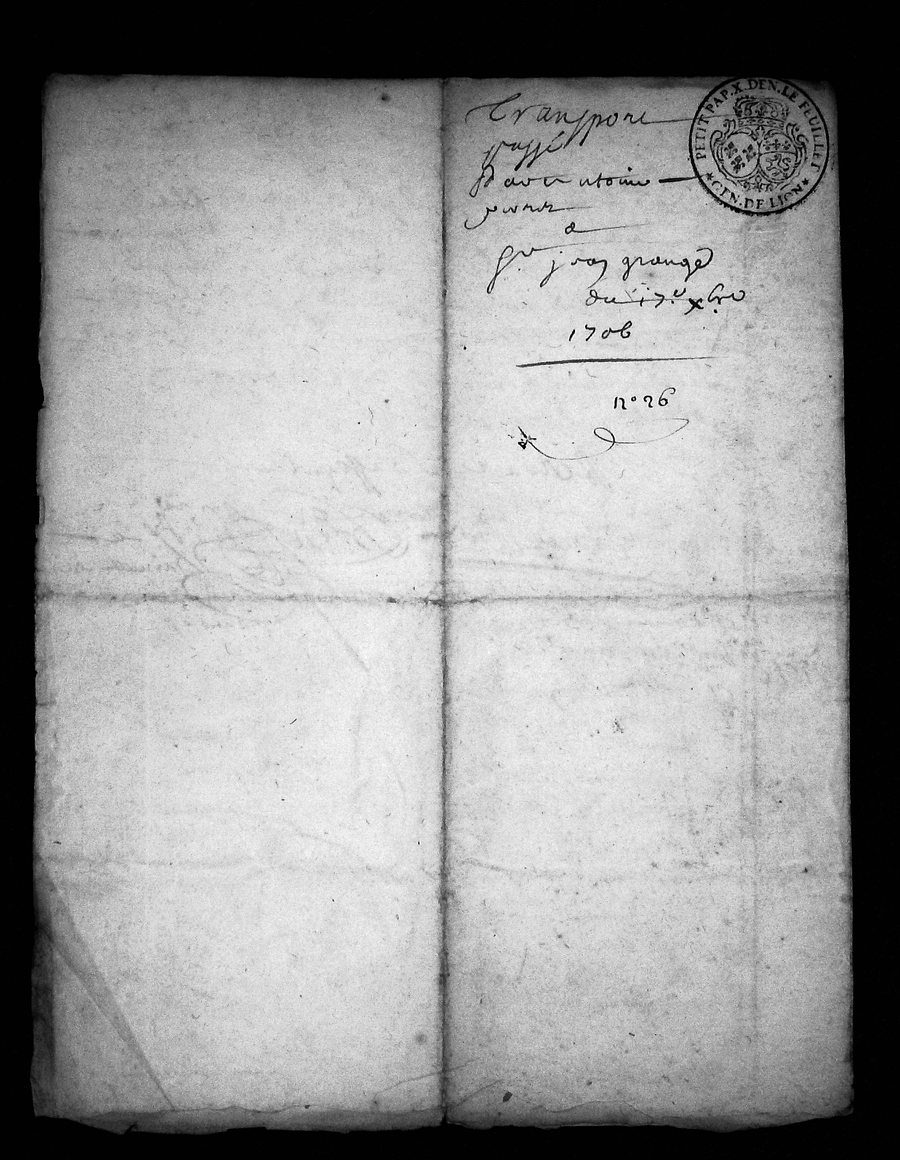 PETIT.PAP.X.DEN.LE FEUILLET
GEN.DE LION
Transport
passé
Par antoine
a
Sr jean grange
du 17e xbre
1706
no 26